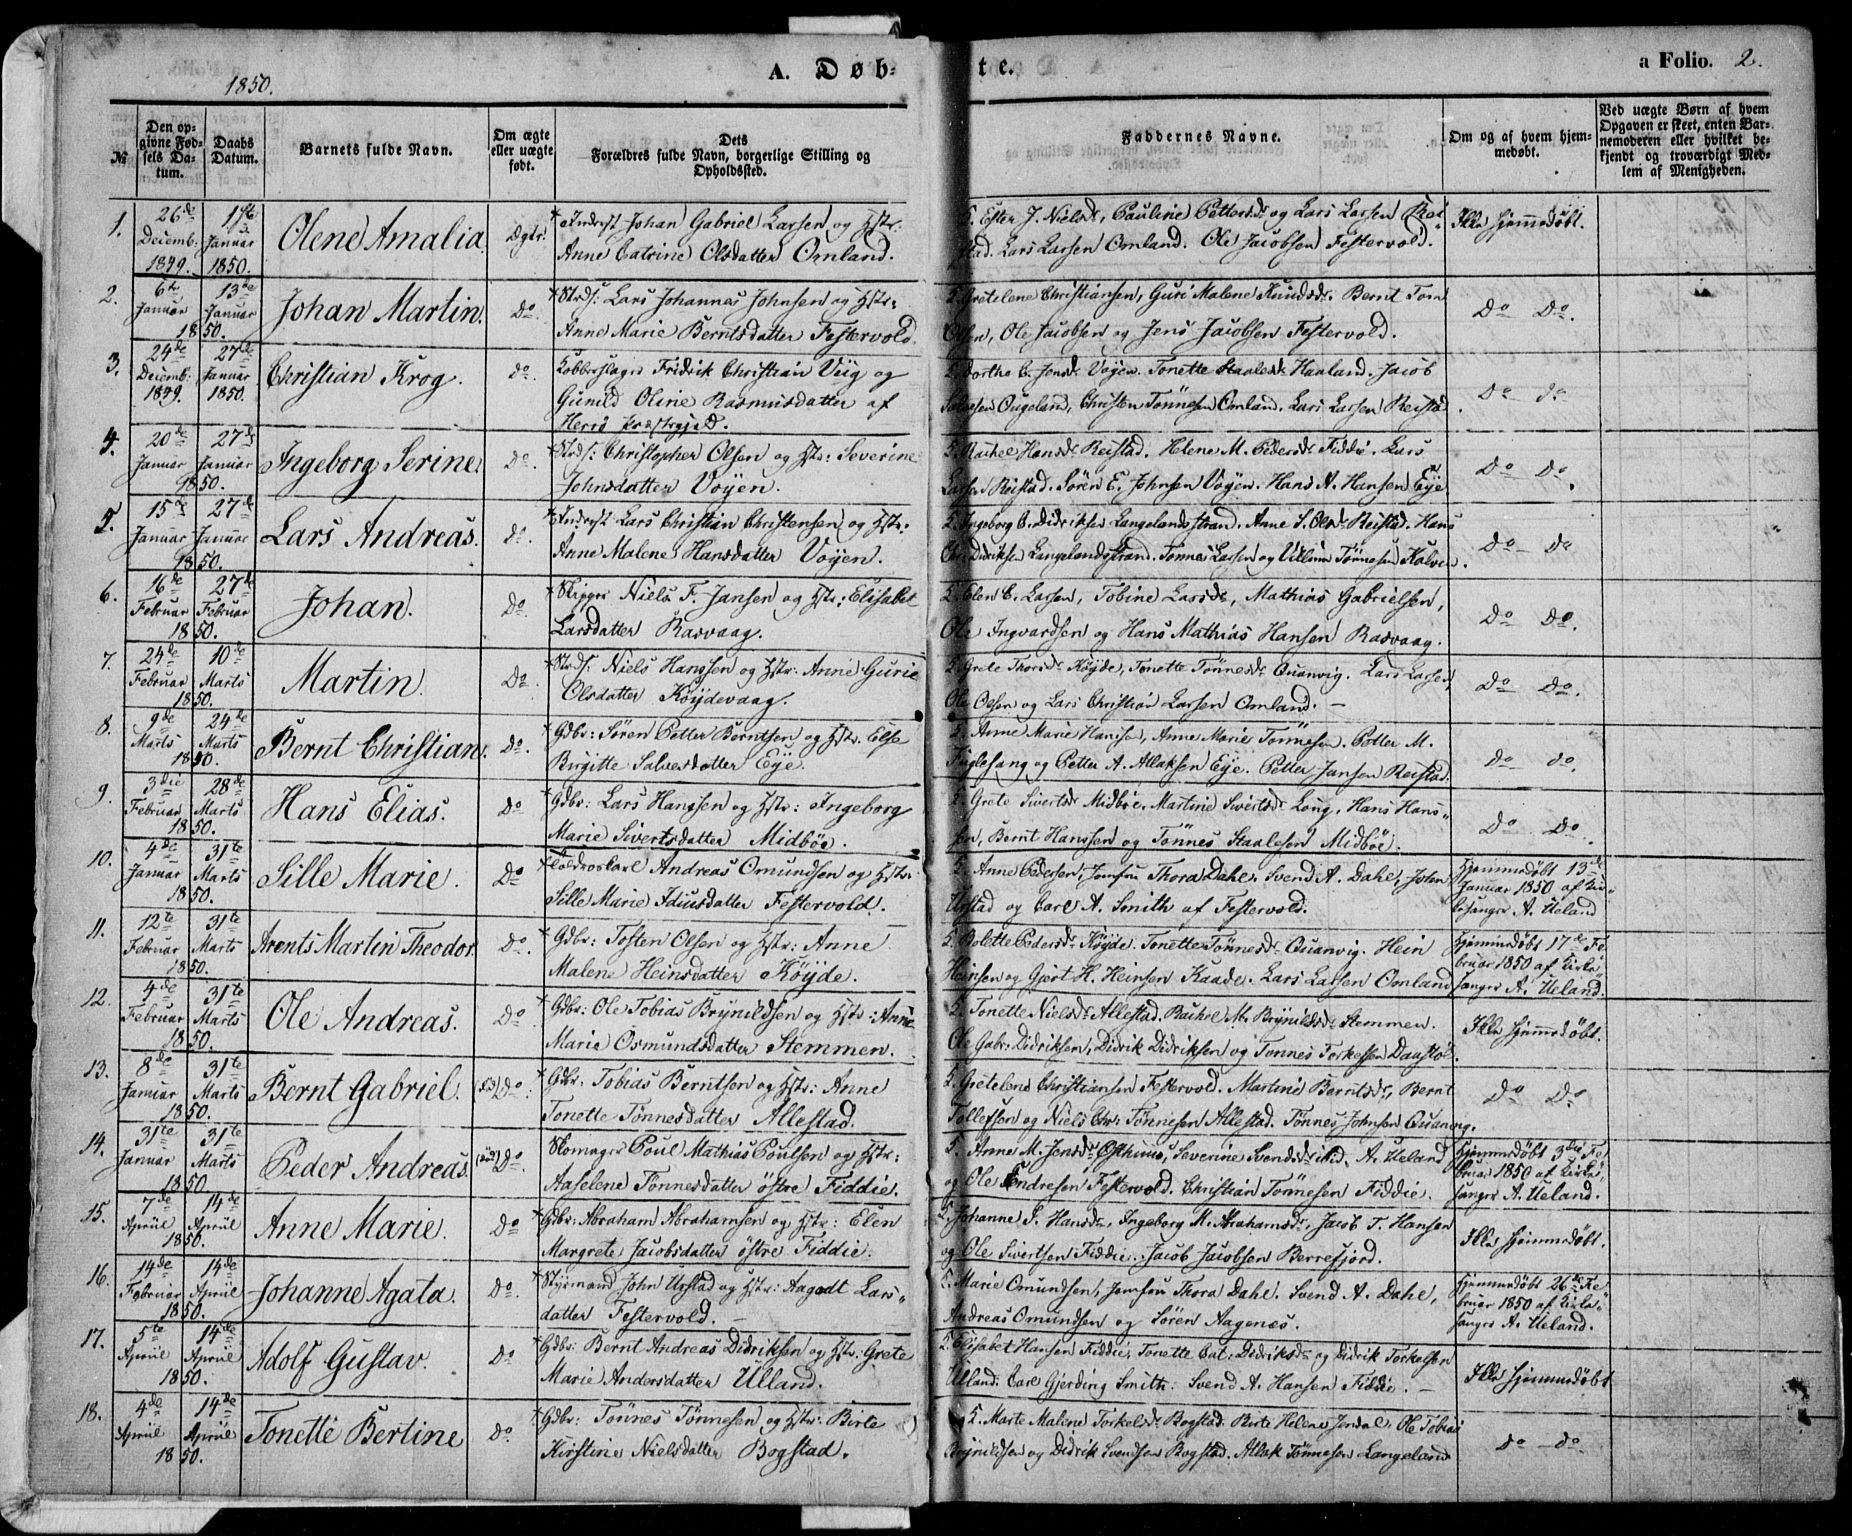 1850.
A. Døb-
te.
a Folio. 2.
№
Den opgivne Fødsels Datum.
Daabs Datum.
Barnets fulde Navn.
Om ægte eller uægte født.
Dets Forældres fulde Navn, borgerlige Stilling og Opholdssted.
Faddernes Navne.
Om og af hvem hjemmedøbt.
Ved uægte Børn af hvem Opgaven er skeet, enten Barnemoderen eller hvilket bekjendt og troværdigt Medlem af Menigheden.
1. 26de Decemb. 1849. Januar 1850. Olene Amalia. Dgtr. Johan Gabriel Larsen og Hstr:
Anne Catrine Olsdatter Omland.
5. Ester J. Nielsdr, Pauline Pettersdr og Lars Larsen Rei-
stad. Lars Larsen Omland. Ole Jacobsen Festervold.
Ikke hjemmedøbt.
2. 6te Januar 13de Januar 1850. Johan Martin. Do. Strds: Lars Johannes Johnsen og Hstr:
Anne Marie Berntsdatter Festervold.
5. Gretelene Christiansen, Guri Malene Knudsdr. Bernt Tom
Olsen, Ole Jacobsen og Jens Jacobsen Festervold.
Do Do.
3. 24de Decemb: 1849. 27de Januar 1850. Christian Krog. Do. Kobberslager Fridrik Christian Veig og
Gunild Oline Rasmusdatter af
Herø Præstegjeld.
5. Dorthe C. Jensdr Vøyen. Tonette Staalesdr Haaland. Jacob
Salvesen Ougeland, Christen Tønnesen Omland. Lars Larsen Reistad.
Do do.
4. 20de Januar 27de Januar 1850. Ingeborg Serine. Do. Strds: Christopher Olsen og Hstr: Severine
Johnsdatter Vøyen.
5. Rachel Hansdr Reistad. Helene M. Pedersdr Fiddie. Lars
Larsen Reistad. Søren E. Johnsen Vøyen. Hans A. Hansen Eye.
Do Do.
5. 15de Januar 27de Januar 1850. Lars Andreas. Do. Lars Christian Christensen og Hstr:
Anne Malene Hansdatter Vøyen.
5. Ingeborg C. Didriksen Langelandsstrand. Anne S. Olsdr Reistad. Hans
Chr: Didriksen Langelandsstrand. Tønnes Larsen og Villum Tønnesen Kalven.
Do Do
6. 16de Februar 27de Februar 1850. Johan. Do Skipper Niels F. Jansen og Hstr: Elisabet
Larsdatter Rasvaag.
5. Elen C. Larsen, Tobine Larsdr, Mathias Gabrielsen,
Ole Ingvardsen og Hans Mathias Hansen Rasvaag.
Do Do.
7. 24de Februar 10de Marts 1850. Martin. Do. Strds: Niels Hanssen og Hstr: Anne Gurie
Olsdatter Køydevaag.
5. Grete Thorsdr Køyde, Tonette Tønnesdr Quanvig. Lars Larsen,
Ole Olsen og Lars Christian Larsen Omland. —
Do Do.
8. 9de Marts 24de Marts 1850. Bernt Christian. Do. Gdbr: Søren Petter Berntsen og Hstr. Else
Birgitte Salvesdatter Eye.
5. Anne Marie Hansen, Anne Marie Tønnesen. Petter M.
Fuglesang og Petter A. Atlaksen Eye. Petter Jansen Reistad.
Do do.
9. 3die Februar 28de Marts 1850. Hans Elias. Do Gdbr: Lars Hanssen og Hstr: Ingeborg
Marie Sivertsdatter Midbøe.
5. Grete Sivertsdr Midbøe, Martine Sivertsdr Loug, Hans Hans-
sen, Bernt Hanssen og Tønnes Staalesen Midbøe.
Do Do.
10. 4de Januar 31te Marts 1850. Sille Marie. Do Andreas Omundsen og Hstr:
Sille Marie Iduusdatter Festervold.
5. Anne Pedersen, Jomfru Thora Dahl, Svend A. Dahl, John
Urstad og Carl A. Smith af Festervold.
Hjemmedøbt 13de
Januar 1850 af Kir-
kesanger A. Ueland
11. 12te Februar 31te Marts 1850. Arents Martin Theodor. Do. Gdbr: Tosten Olsen og Hstr: Anne
Malene Heinsdatter Køyde.
5. Bolette Pedersdr Køyde. Tonette Tønnesdr Quanvig. Hein
Heinsen og Gjert H. Heinsen Kaade. Lars Larsen Omland
Hjemmedøbt 17de Fe-
bruar 1850 af Kirke-
sanger A. Ueland.
12. 4de Februar 31te Marts 1850. Ole Andreas. Do. Gdbr: Ole Tobias Brynildsen og Hstr: Anne
Marie Osmundsdatter Stemmen.
5. Tonette Nielsdr Allestad. Rachel M. Brynildsdr Stemmen.
Ole Gabr: Didriksen, Didrik Didriksen og Tønnes Torkelsen Daastøl.
Ikke hjemmedøbt.
13. 8de Januar 31te Marts 1850. Bernt Gabriel. Do: Gdbr: Tobias Berntsen og Hstr: Anne
Tonette Tønnesdatter Allestad.
5. Gretelene Christiansen Festervold. Martine Berntsdr, Bernt
Tollefsen og Niels Chr: Tønnesen Allestad. Tønnes Johnsen Quanvig.
Do Do
14. 31te Januar 31te Marts 1850 Peder Andreas. Do. Skomager Poul Mathias Poulsen og Hstr:
Aaselene Tønnesdatter østre Fiddie.
5. Anne M. Jensdr, Severine Svendsdr ibid, A. Ueland
og Ole Endresen Festervold. Christian Tønnesen Fiddie.
Hjemmedøbt 3die Fe-
bruar 1850 af Kirke-
sanger A. Ueland.
15. 7de April 14de April 1850. Anne Marie. Do Gdbr: Abraham Abrahamsen og Hstr: Elen
Margrete Jacobsdatter østre Fiddie.
5. Johanne S. Hansdr, Ingeborg M. Abrahamsdr, Jacob T. Hansen
og Ole Sivertsen Fiddie. Jacob Jacobsen Berrefjord.
Ikke hjemmedøbt.
16. 14de Februar 14de April 1850. Johanne Agata. Do. Styrmand John Urstad og Hstr: Aagodt Lars-
datter Festervold. —
5. Marie Omundsen, Jomfru Thora Dahl. Svend A. Dahl,
Andreas Omundsen og Søren Aagenæs.
Hjemmedøbt 26de Fe-
bruar 1850 af Kirke-
sanger A. Ueland.
17. 5te April 14de April 1850. Adolf Gustav. Do Gdbr: Bernt Andreas Didriksen og Hstr: Grete
Marie Andersdatter Ulland.
5. Elisabet Hansen Fiddie, Tonette Cat: Didriksdr og Didrik Torkelsen
Ulland. Carl Gjerding Smith. Svend A. Hansen Fiddie. —
Ikke hjemmedøbt
18. 4de April 14de April 1850. Tonette Bertine Do. Gdbr: Tønnes Tønnesen og Hstr: Birte
Kirstine Nielsdatter Bogstad.
5. Marte Malene Torkelsdr Bogstad. Birte Helene Jerdal. Ole Tobias
Brynildsen og Didrik Svendsen Bogstad. Atlak Tønnesen Langeland
Do Do